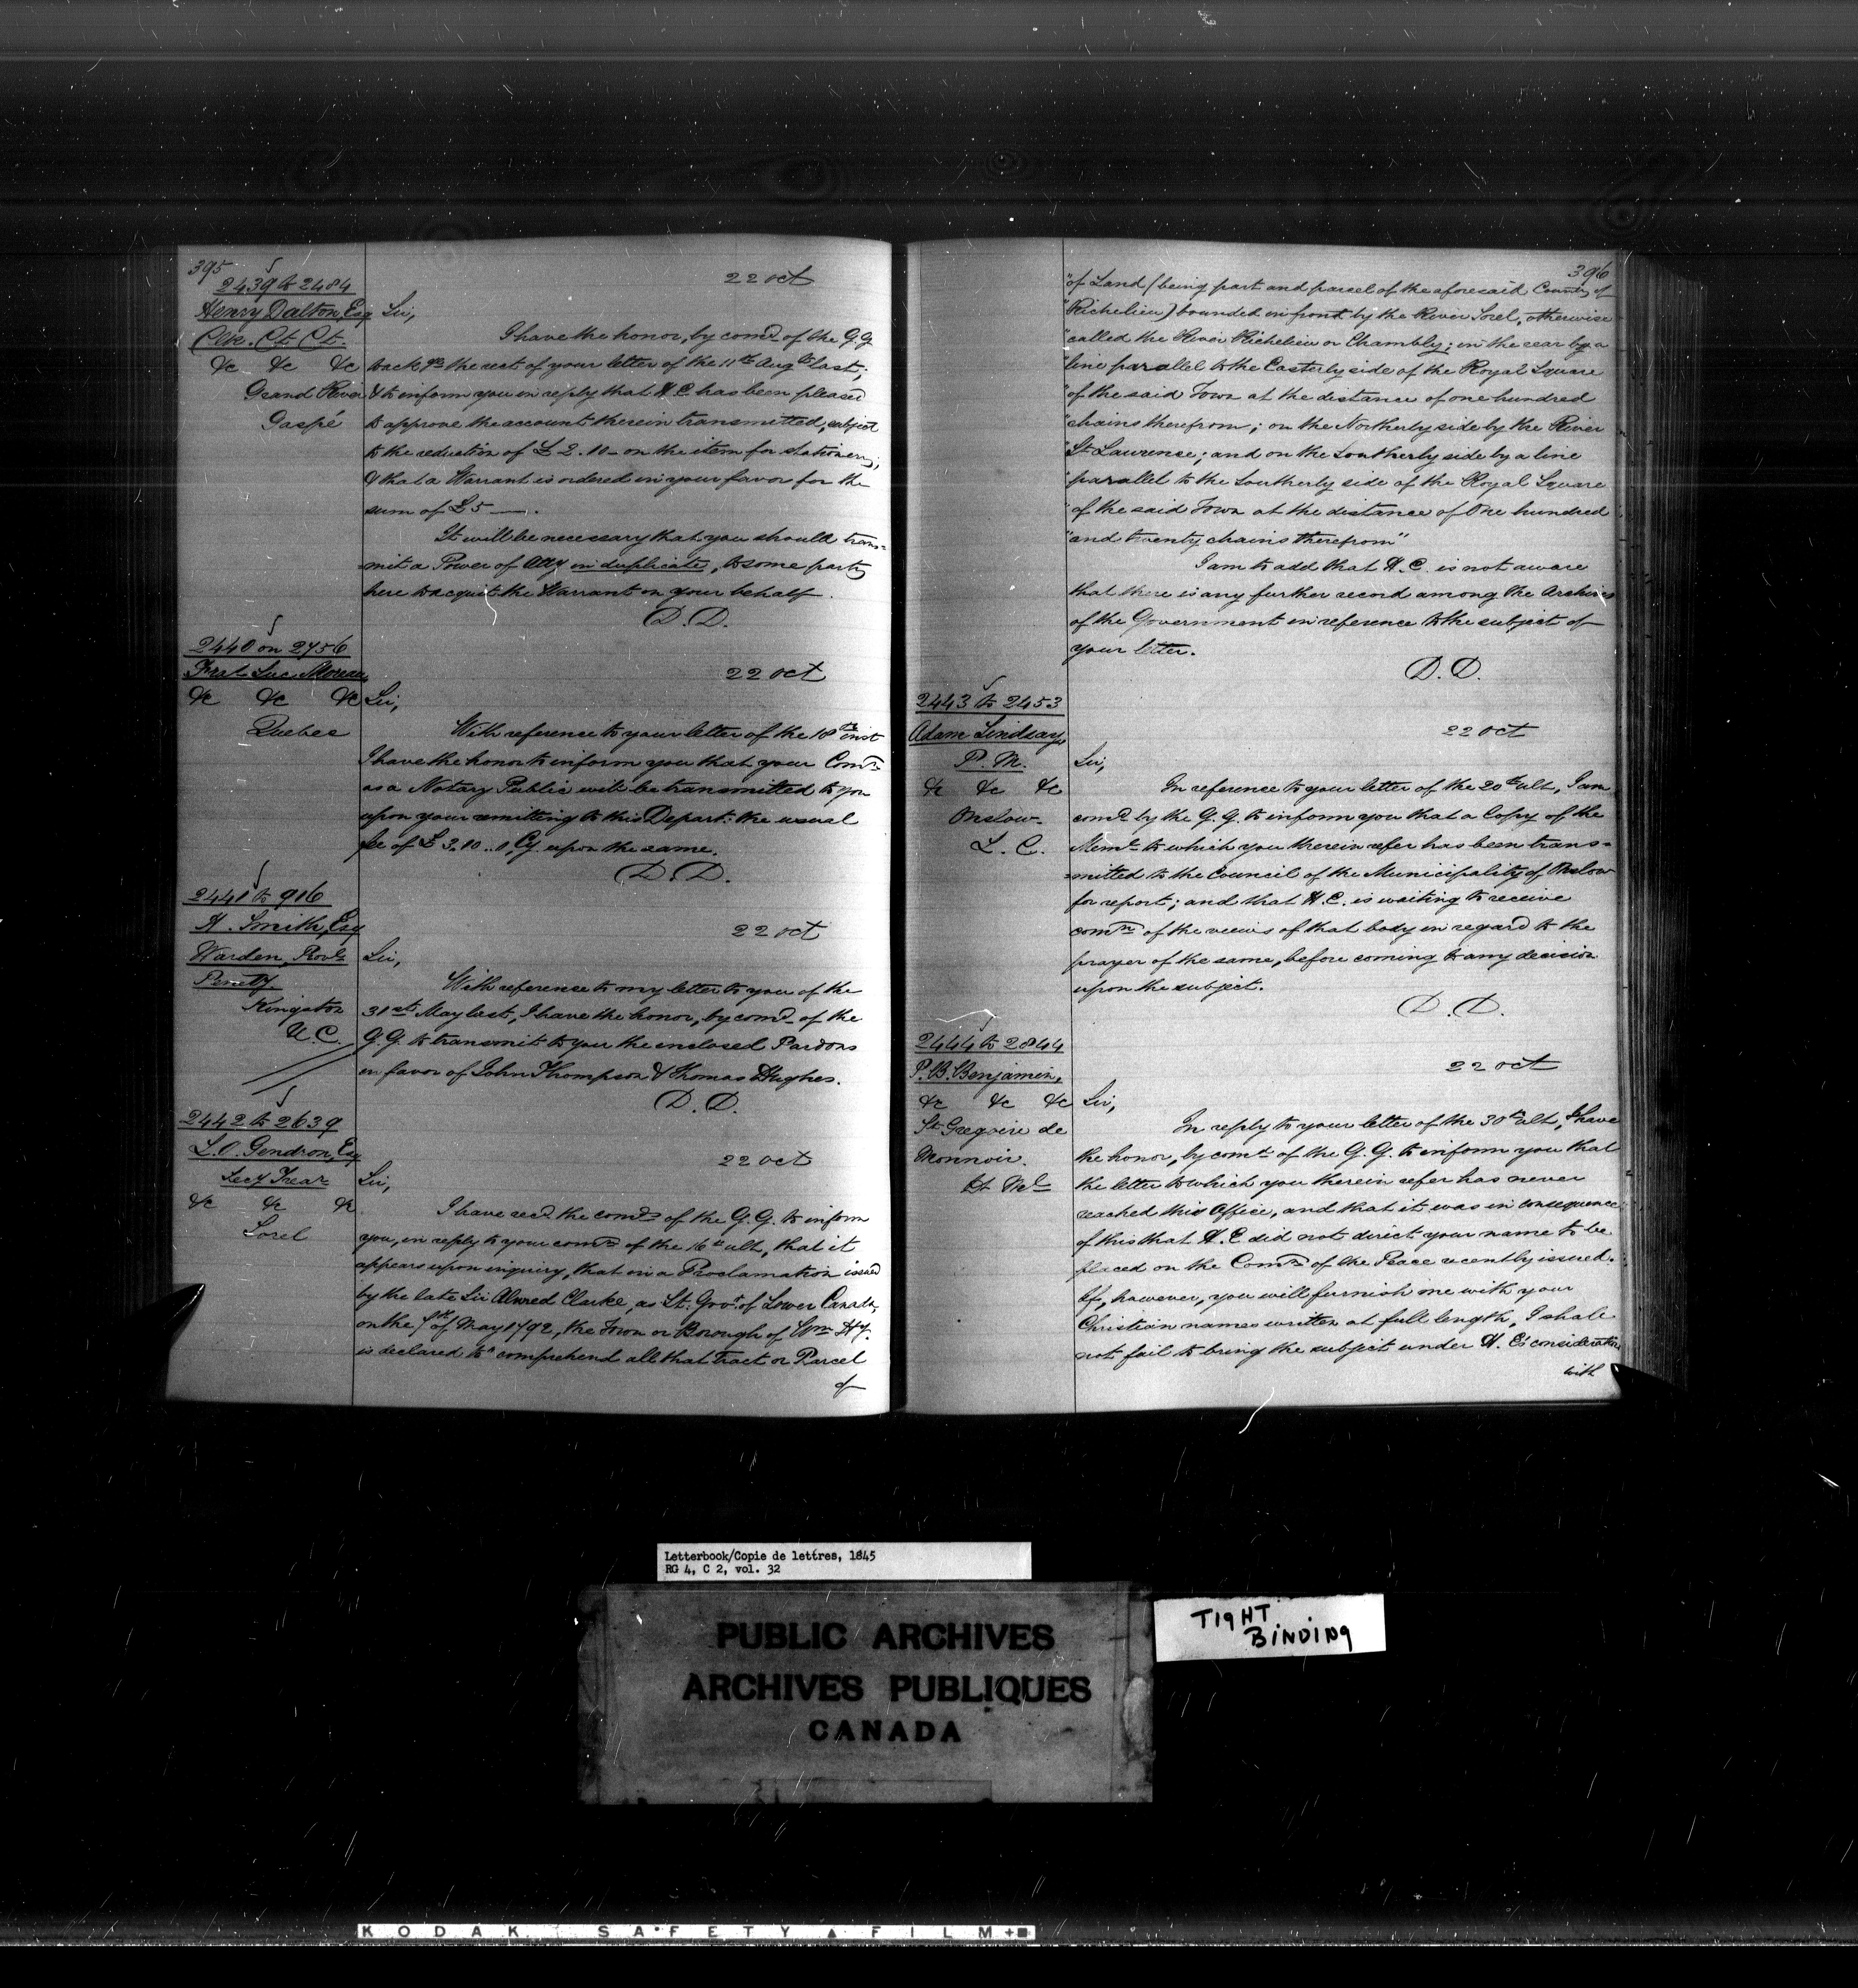 395
2439 to 2484
22 Oct
Henry Dalton, Esq
Clk. Ct. Ct.
&c &c &c
Grand River
Gaspé
Sir,
I have the honor, by comd of the G.G.
to ack ge the rect of your letter of the 11th Augt last;
& to inform you in reply that H.E. has been pleased
to approve the account therein transmitted, subject
to the reduction of £2.10- on the item for stationery;
& that a Warrant is ordered in your favor for the
sum of £5 —.
It will be necessary that you should trans=
mit a Power of Atty in duplicate, to some party
here to acquit the Warrant on your behalf.
D.D.
2440 on 2756
22 Oct
Frs Luc Moreau
&c &c &c
Quebec
Sir,
With reference to your letter of the 18th inst
I have the honor to inform you that your Comn
as a Notary Public will be transmitted to you
upon your remitting to this Depart: the usual
fee of £3.10..0 Cy upon the same.
D.D.
2441 to 906
22 Oct
H. Smith, Esq
Warden, Provl
Penity.
Kingston
U.C.
Sir,
With reference to my letter to you of the
31st May last, I have the honor, by comd of the
G.G. to transmit to you the enclosed Pardons
in favor of John Thompson & Thomas Hughes.
D.D.
2442 to 2639
22 Oct
L.O. Gendron, Esq
Secy Trear
&c &c &c
Sorel
Sir,
I have recd the comds of the G.G. to inform
you, in reply to your comn of the 16th ult, that it
appears upon inquiry, that in a Proclamation issued
by the late Sir Alured Clarke, as Lt. Govr of Lower Canada,
on the 7th of May 1792, the Town or Borough of Wm Hy.
is declared to "comprehend all that Tract or Parcel
of
396
"of Land (being part and parcel of the aforesaid County of
"Richelieu) bounded in front by the River Sorel, otherwise
"called the River Richelieu or Chambly; in the rear by a
"line parallel to the Easterly side of the Royal Square
"of the said Town at the distance of one hundred
"chains therefrom; on the Northerly side by the River
"St Lawrence; and on the Southerly side by a line
"parallel to the Southerly side of the Royal Square
"of the said Town at the distance of One hundred
"and twenty chains therefrom"
I am to add that H.E. is not aware
that there is any further record among the Archives
of the Government in reference to the subject of
your letter.
D.D.
2443 to 2453
22 Oct
Adam Lindsay,
P.M.
&c &c &c
Onslow
L.C.
Sir,
In reference to your letter of the 20th ult, I am
comd by the G.G. to inform you that a Copy of the
Meml to which you therein refer has been trans=
=mitted to the Council of the Municipality of Onslow
for report; and that H.E. is waiting to receive
comn of the views of that body in regard to the
prayer of the same, before coming to any decision
upon the subject.
D.D.
2444 to 2844
22 Oct
P.B. Benjamin,
&c &c &c
St Gregoire de
Monnoir.
Sir,
In reply to your letter of the 30th ult, I have
the honor, by comd of the G.G. to inform you that
the letter to which you therein refer has never
reached this Office, and that it was in consequence
of this that H.E. did not direct your name to be
placed on the Comn of the Peace recently issued.
If, however, you will furnish me with your
Christian names written at full length, I shall
not fail to bring the subject under H.E's consideration
with
Letterbook/Copie de lettres, 1845
RG 4, C 2, vol. 32
PUBLIC ARCHIVES
ARCHIVES PUBLIQUES
CANADA
TIGHT
BINDING
KODAK SAFETY FILM